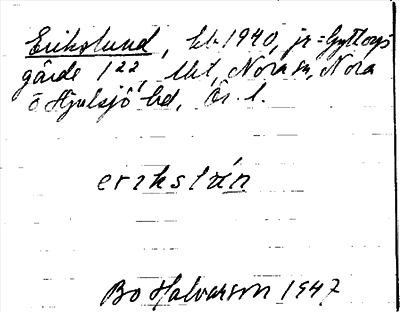 Erikslund, bb. 1940, jr = Gyttorps
gårde 1²², Uht, Nora sn, Nora
o Hjulsjö bd, Ör. l.
erikslún
Bo Halvarson 1947